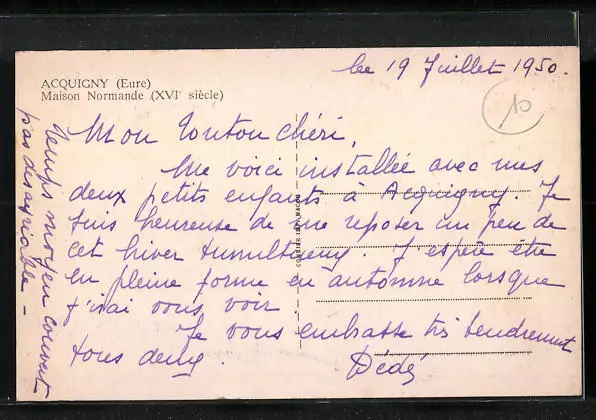 ACQUIGNY (Eure)
Maison Normande (XVIe siècle)
le 19 Juillet 1950.
10
Mon Tonton chéri,
Me voici installée avec mes
deux petits enfants à Acquigny. Je
suis heureuse de me reposer un peu de
cet hiver tumultueux. J'espère être
en pleine forme en automne lorsque
j'irai vous voir.
Je vous embrasse très tendrement
tous deux.
Dédé
Temps moyen couvert
pas désagréable -
COMBIER IMP. MACON